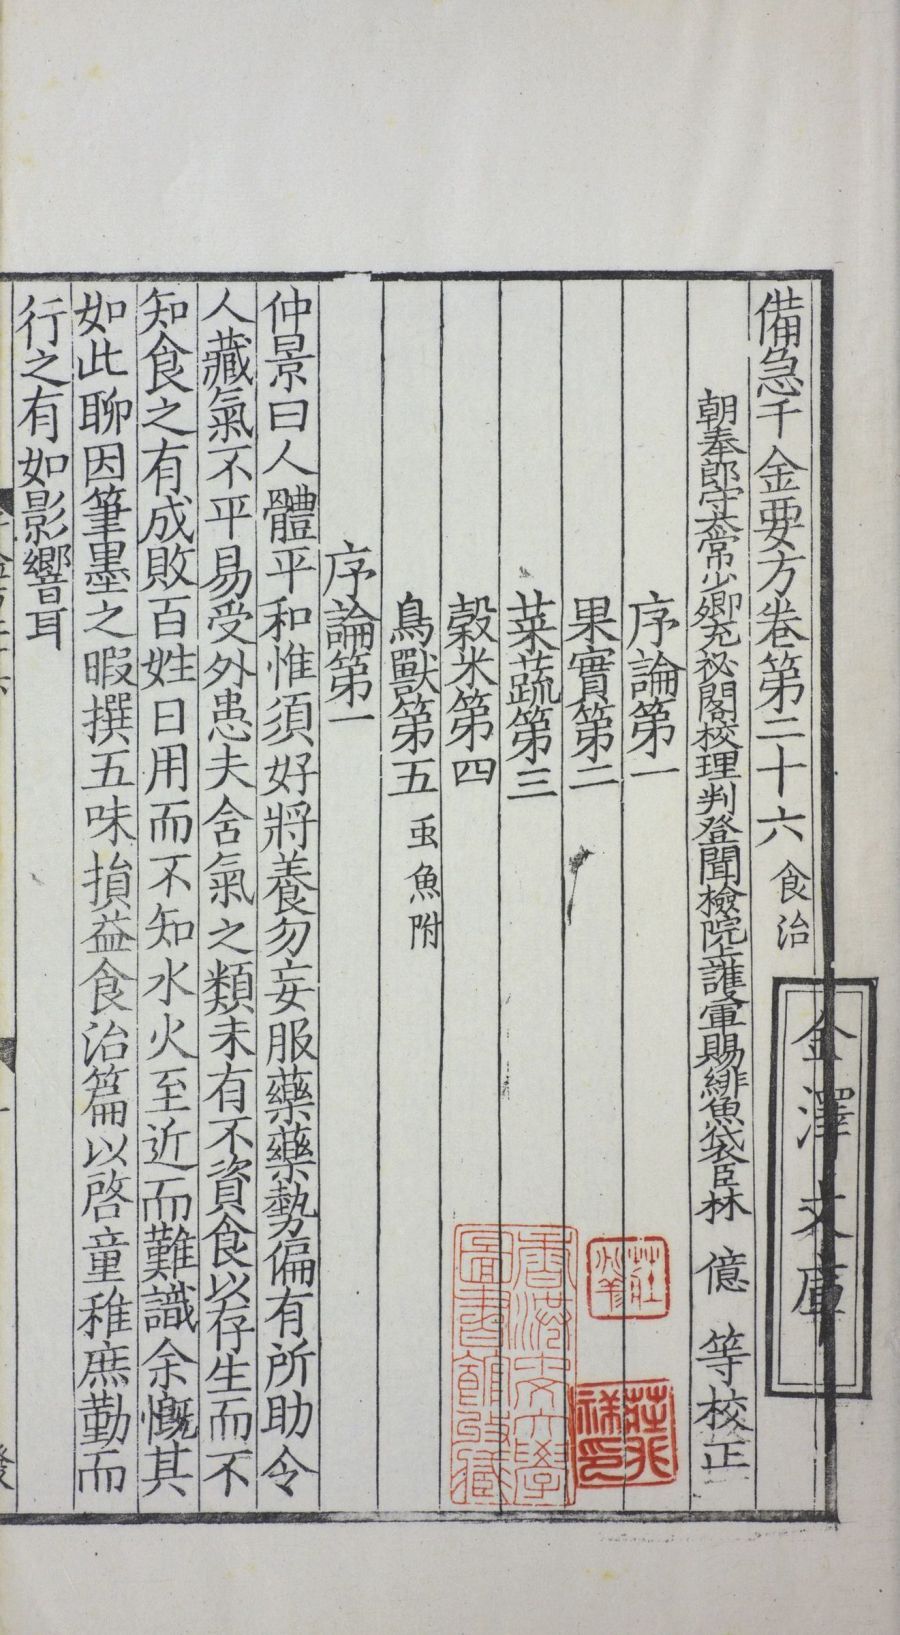 備急千金要方卷第二十六 食治
朝奉郎守太常少卿充祕閣校理判登聞檢院上護軍賜緋魚袋臣林 億 等校正
序論第一
果實第二
菜蔬第三
穀米第四
鳥獸第五 䖝魚附
序論第一
仲景曰人體平和惟須好將養勿妄服藥藥勢偏有所助令
人藏氣不平易受外患夫含氣之類未有不資食以存生而不
知食之有成敗百姓日用而不知水火至近而難識余慨其
如此聊因筆墨之暇撰五味損益食治篇以啓童稚庶勤而
行之有如影響耳
金澤文庫
莊兆祥印
香港中文大學
圖書館攷藏